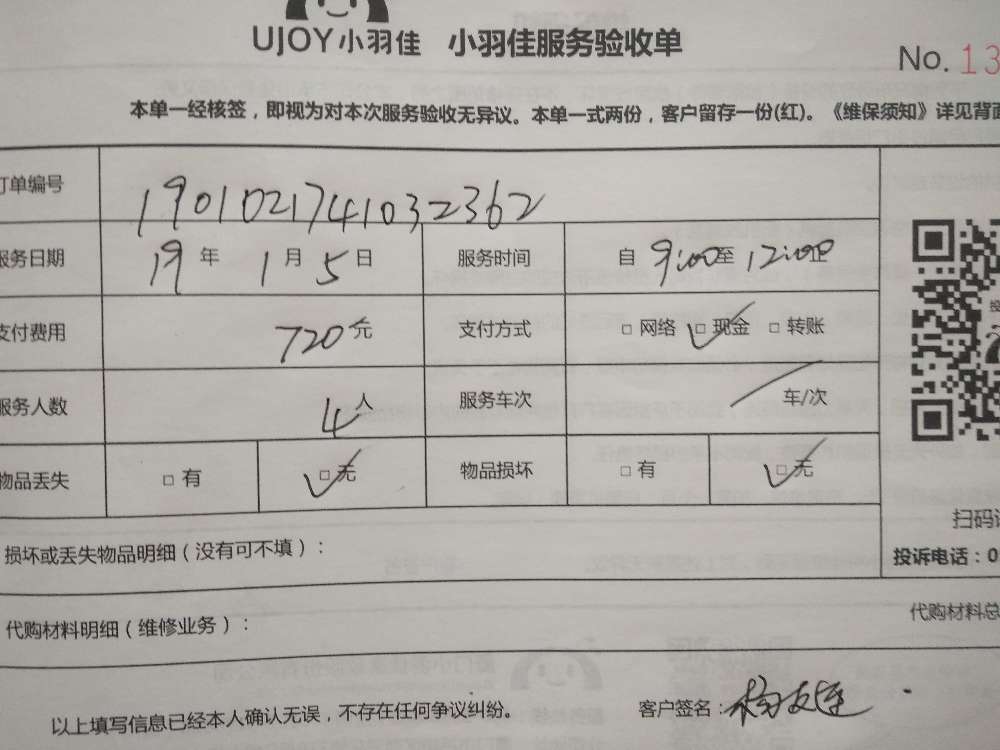 UJOY小羽佳 小羽佳服务验收单
No. 13
本单一经核签，即视为对本次服务验收无异议。本单一式两份，客户留存一份(红)。《维保须知》详见背面
订单编号 1901021741032362
服务日期 19 年 1 月 5 日 服务时间 自 9:00 至 12:00
支付费用 720 元 支付方式 □ 网络 □ 现金 □ 转账
服务人数 4 人 服务车次 车/次
物品丢失 □ 有 □ 无 物品损坏 □ 有 □ 无
扫码
损坏或丢失物品明细（没有可不填）：
投诉电话：0
代购材料明细（维修业务）：
代购材料总
以上填写信息已经本人确认无误，不存在任何争议纠纷。 客户签名：